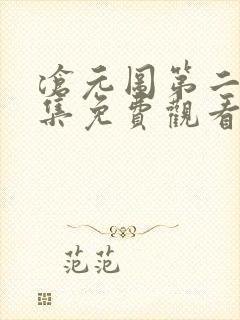 滄元圖第二
集免費觀看
范范